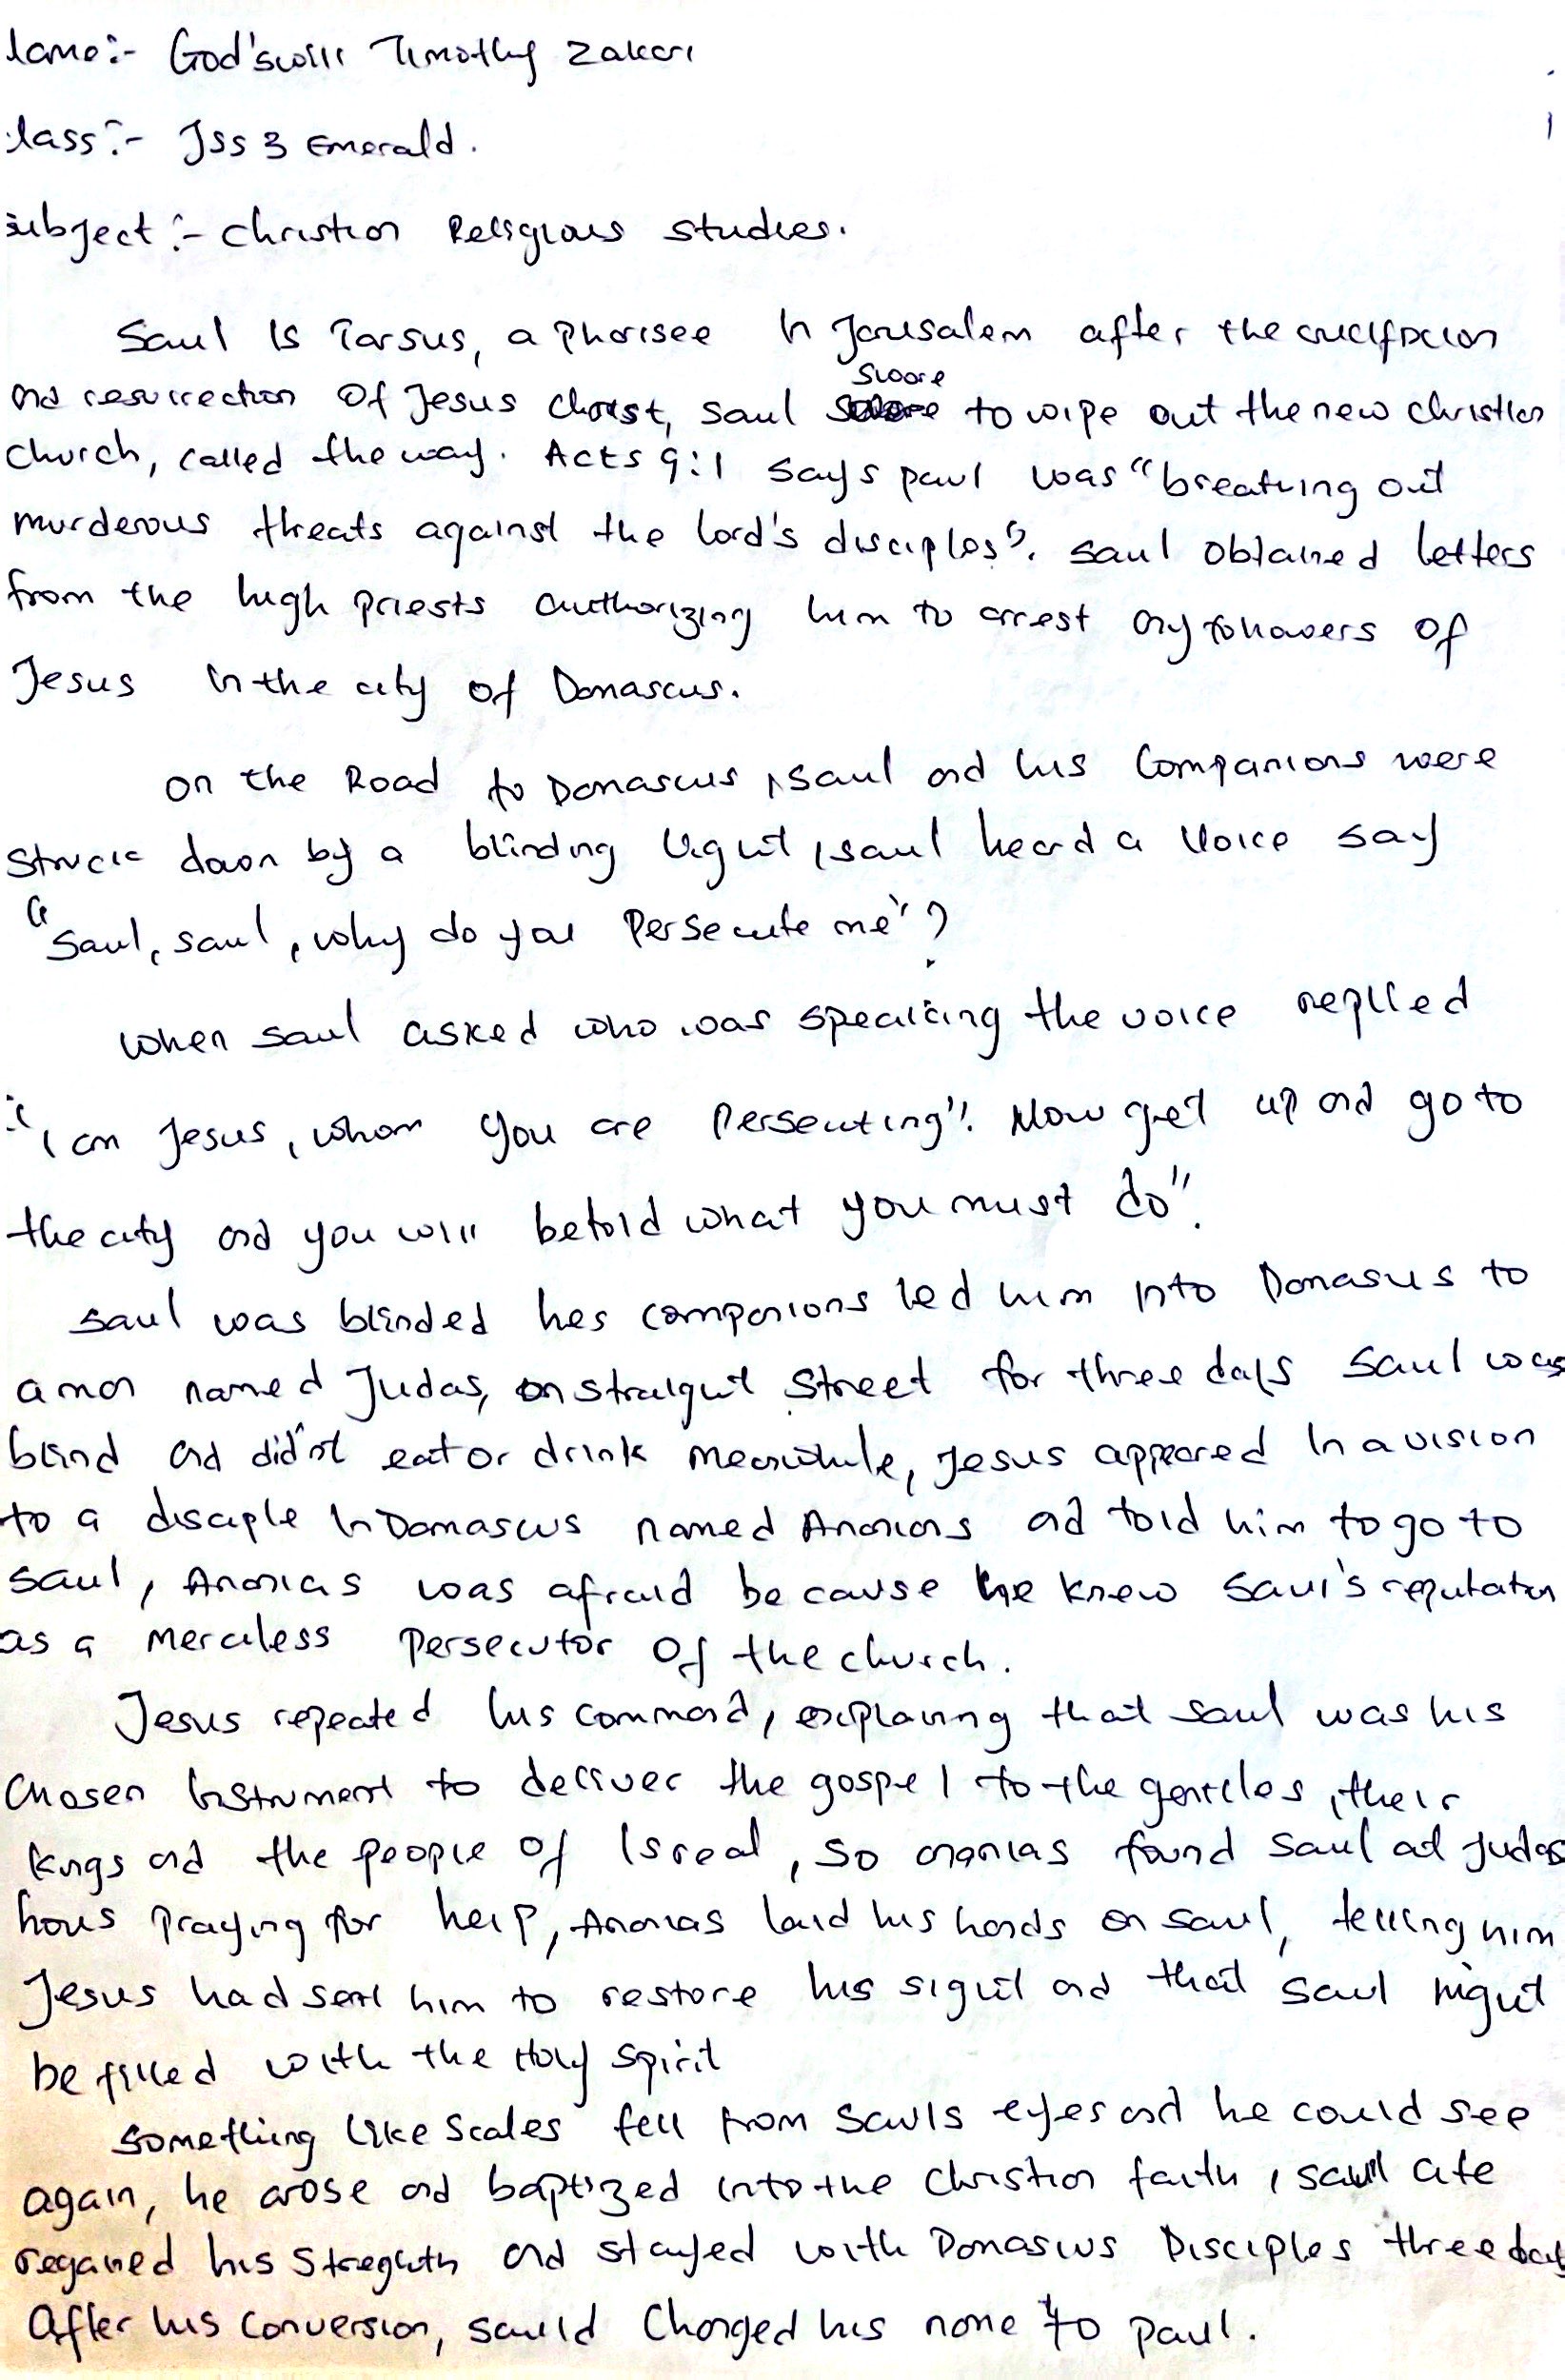 lame:- God'swill Timothy Zakari
lass:- Jss 3 Emerald.
subject:- Christian Religious studies.
Saul Is Tarsus, a Pharisee In Jerusalem after the crucifixion
and resurrection Of Jesus Christ, Saul swore to wipe out the new christian
church, called the way. Acts 9:1 says paul was "breathing out
murderous threats against the lord's disciples". Saul Obtained letters
from the high priests authorizing him to arrest any followers of
Jesus In the city of Damascus.
On the Road to Damascus, Saul and his Companions were
Struck down by a blinding light, saul heard a Voice say
"Saul, saul, why do you Persecute me"?
When saul asked who was speaking the voice replied
"I am Jesus, whom you are Persecuting". Now get up and go to
the city and you will be told what you must do".
Saul was blinded hes companions led him Into Damasus to
a man named Judas, on Straight Street for three days Saul was
blind and did'nt eat or drink meanwhile, Jesus appeared In a vision
to a disciple In Damascus named Ananias and told him to go to
Saul, Ananias was afraid because he knew Saul's reputation
as a merciless Persecutor Of the church.
Jesus repeated his command, explaining that Saul was his
Chosen Instrument to deliver the gospel to the gentiles, their
kings and the people of Isreal, So ananias found Saul at Judas
hous praying for help, Ananias laid his hands on Saul, telling him
Jesus had sent him to restore his sight and that Saul might
be filled with the Holy Spirit
Something Like Scales fell from Sauls eyes and he could see
again, he arose and baptized into the Christian faith, saul ate
regained his Streghth and stayed with Damasus Disciples three days
After his Conversion, sauld Changed his name to paul.